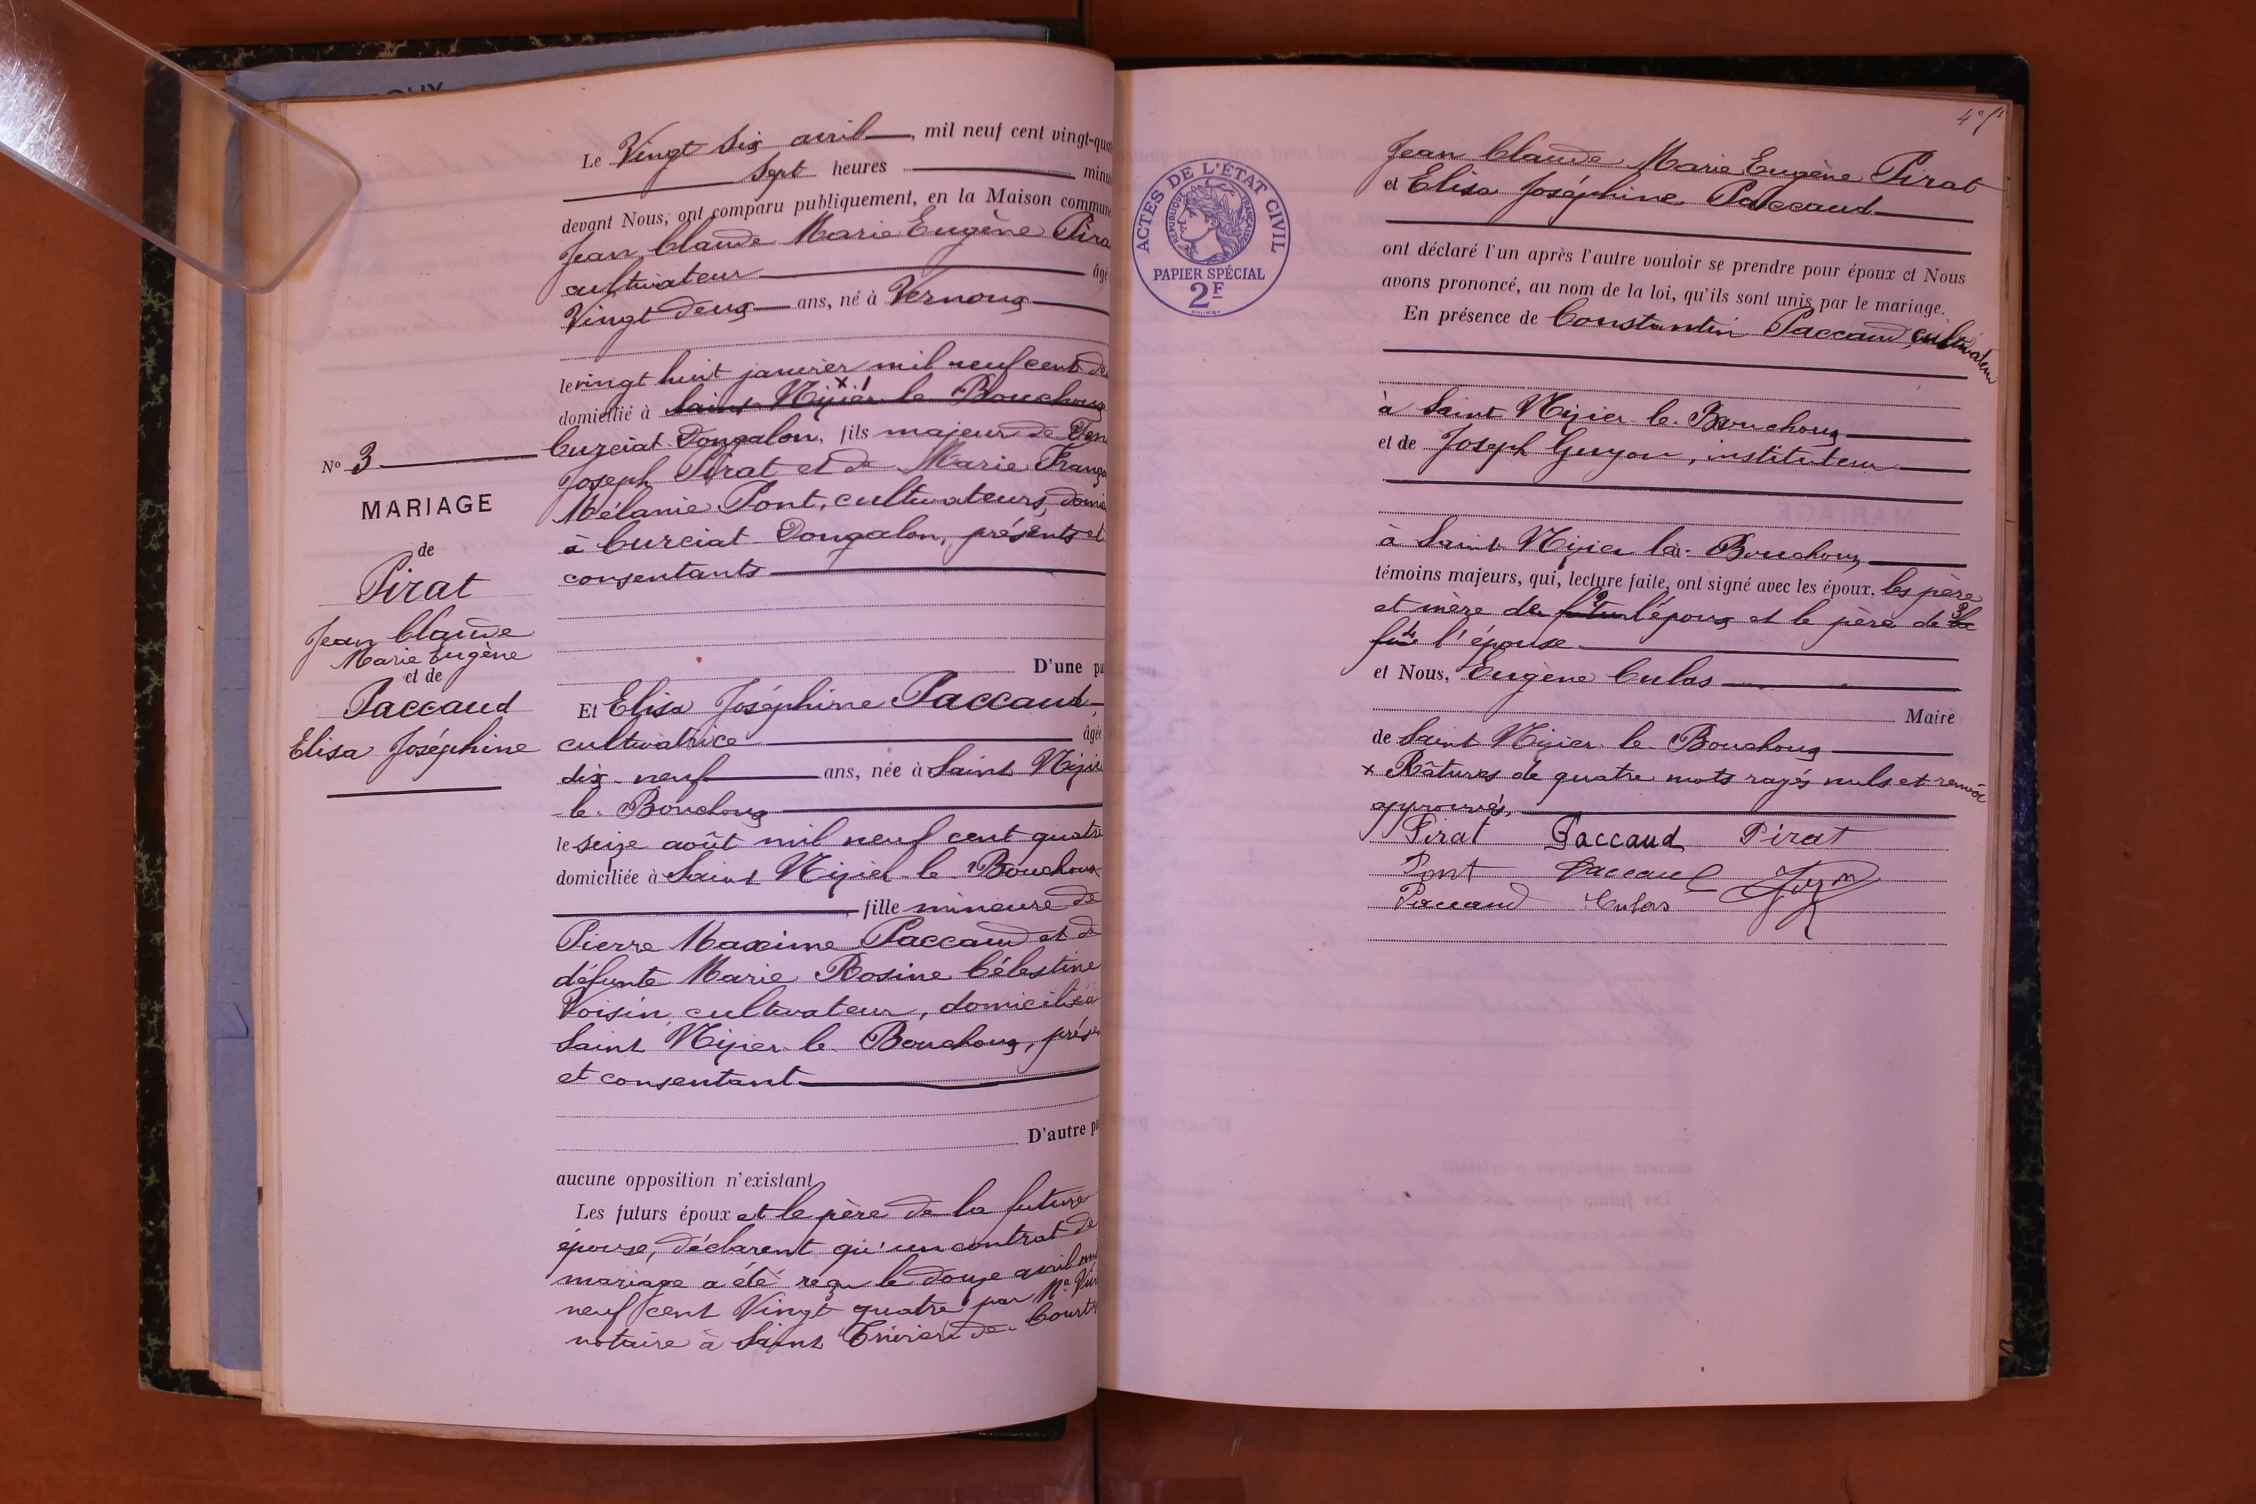 OUX
Le Vingt six avril, mil neuf cent vingt-qua
Sept heures minu
devant Nous, ont comparu publiquement, en la Maison commune
Jean Claude Marie Eugène Pira
cultivateur âgé
Vingt deux ans, né à Vernoux
le vingt huit janvier mil neuf cent de
domicilié à Saint Nizier le Bouchoux
Curciat Dongalon, fils majeur de
Joseph Pirat et de Marie Franç
Mélanie Pont, cultivateurs, domic
à Curciat Dongalon, présents et
consentants
D'une pa
Nº 3
MARIAGE
de
Pirat
Jean Claude
Marie Eugène
et de
Paccaud
Elisa Joséphine
Et Elisa Joséphine Paccaud,
cultivatrice âgée
dix-neuf ans, née à Saint Nizie
le Bouchoux
le seize août mil neuf cent quatre
domiciliée à Saint Nizier le Bouchoux
fille mineure de
Pierre Maxime Paccaud et d
défunte Marie Rosine Célestine
Voisin, cultivateur, domicilié à
Saint Nizier le Bouchoux, prése
et consentant
D'autre pa
aucune opposition n'existant
Les futurs époux et le père de la future
épouse, déclarent qu'un contrat de
mariage a été reçu le douze avril mil
neuf cent Vingt quatre par Me
notaire à Saint Trivier de Courte
ACTES DE L'ÉTAT CIVIL
RÉPUBLIQUE FRANÇAISE
PAPIER SPÉCIAL
2F
Jean Claude Marie Eugène Pirat
et Elisa Joséphine Paccaud
ont déclaré l'un après l'autre vouloir se prendre pour époux et Nous
avons prononcé, au nom de la loi, qu'ils sont unis par le mariage.
En présence de Constantin Paccaud, cultivateur
à Saint Nizier le Bouchoux
et de Joseph Guyon, instituteur
à Saint Nizier le Bouchoux
témoins majeurs, qui, lecture faite, ont signé avec les époux, les père
et mère de l'époux et le père de
l'épouse
et Nous, Eugène Culas
Maire
de Saint Nizier le Bouchoux
x Râtures de quatre mots rayés nuls et renvoi
approuvés.
Pirat Paccaud Pirat
Pont Paccaud Guyon
Paccaud Culas